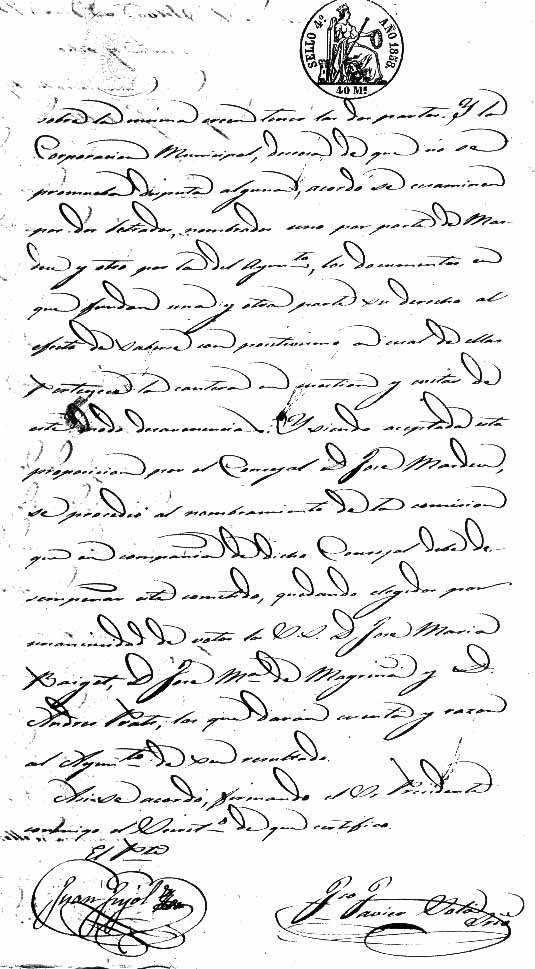 SELLO 4º AÑO 1858.
40 Ms
sobre la misma creen tener las dos partes. Y la
Corporacion Municipal, deseosa de que no se
promueba disputa alguna, acordó se examinen
por dos letrados, nombrados uno por parte de Mar
deu y otro por la del Ayunto, los documentos en
que fundan una y otra parte su derecho al
efecto de saberse con positivismo a cual de ellas
pertenece la cantera en cuestion y evitar de
este modo desavenencias. Y siendo aceptada esta
proposicion por el Concejal D. José Mardeu,
se procedió al nombramiento de la comision
que en compañia de dicho Concejal debe de
sempeñar este cometido, quedando elegidos por
unanimidad de votos los S.S. D. José Maria
Baiget, D. José Ma de Magriñá y D.
Andres Prats, los que darán cuenta y razon
al Ayunto de su resultado.
Asi se acordó, firmando el Sr Presidente
conmigo el Secreto de que certifico.
El Pte
Juan Pujol
Franco Javier Soto
Srio